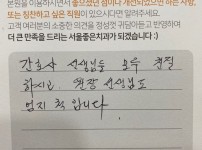 본원을 이용하시면서 좋았었던 점이나 개선되었으면 하는 사항,
또는 칭찬하고 싶은 직원이 있으시다면 알려주세요.
고객 여러분의 소중한 의견을 정성껏 귀담아듣고 반영하여
더 큰 만족을 드리는 서울좋은치과가 되겠습니다 :)
간호사 선생님들 모두 친절
하시고 원장 선생님도
멋지십니다